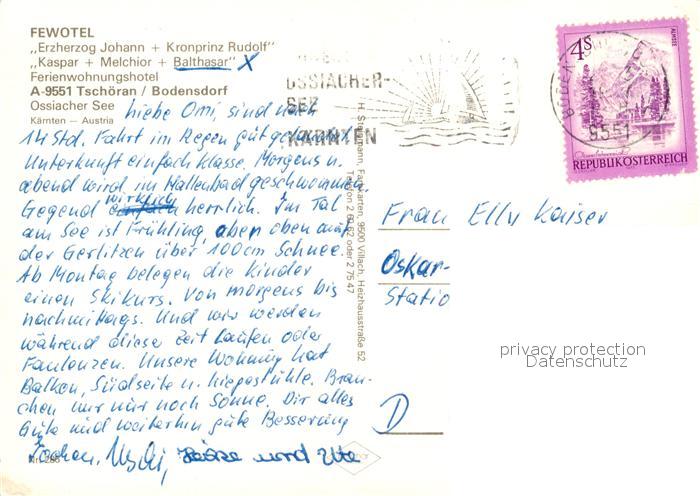 FEWOTEL
„Erzherzog Johann + Kronprinz Rudolf"
„Kaspar + Melchior + Balthasar" X
Ferienwohnungshotel
A-9551 Tschöran / Bodensdorf
Ossiacher See
Kärnten – Austria
liebe Omi, sind nach
14 Std. Fahrt im Regen gut
Unterkunft einfach Klasse. Morgens u.
abend wird im Hallenbad geschwommen.
Gegend wirklich herrlich. Im Tal
am See ist Frühling, aber oben auf
der Gerlitzen über 100cm Schnee.
Ab Montag belegen die Kinder
einen Skikurs. Von morgens bis
nachmittags. Und wir werden
während dieser Zeit laufen oder
Faulenzen. Unsere Wohnung hat
Balkon, Südseite u. Liegestühle. Brau-
chen wir nur noch Sonne. Dir alles
Gute und weiterhin gute Besserung
Jochen, Uschi, und Ute
OSSIACHER-
SEE
KÄRNTEN
4 S
ALMSEE
REPUBLIK ÖSTERREICH
9551
H. Fachkarten, 9500 Villach, Heizhausstraße 52
Telefon oder 2 75 47
Frau Elly Kaiser
Oskar-
Statio
D
privacy protection
Datenschutz